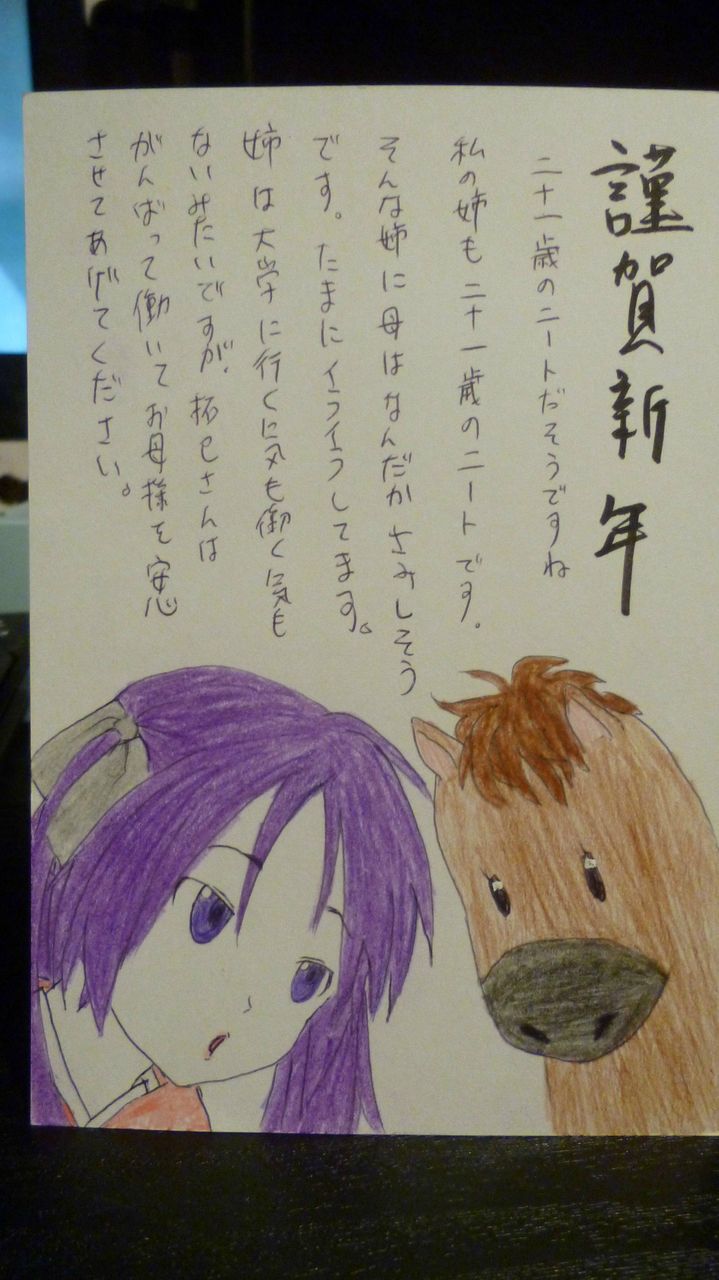 謹賀新年
二十一歳のニートだそうですね
私の姉も二十一歳のニートです。
そんな姉に母はなんだかさみしそう
です。たまにイライラしてます。
姉は大学に行くに気も働く気も
ないみたいですが、拓巳さんは
がんばって働いてお母様を安心
させてあげてください。